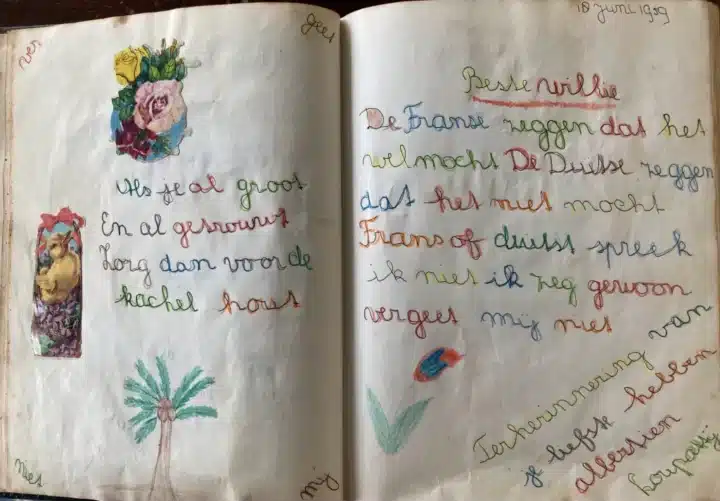 ver
geet
Als je al groot
En al getrouwt
Zorg dan voor de
kachel hout
niet
my
18 Juni 1959
Beste willie
De Franse zeggen dat het
wel mocht De Duitse zeggen
dat het niet mocht
Frans of duitst spreek
ik niet ik zeg gewoon
vergeet mij niet
Terherinnering van
hebben